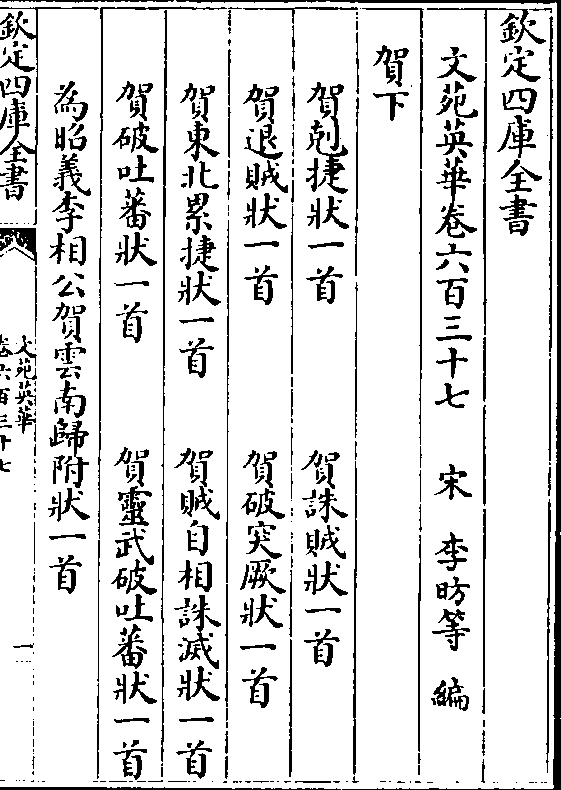 欽定四庫全書
文苑英華卷六百三十七 宋 李昉等 編
賀下
賀剋捷狀一首 賀誅賊狀一首
賀退賊狀一首 賀破突厥狀一首
賀東北累捷狀一首 賀賊自相誅滅狀一首
賀破吐蕃狀一首 賀靈武破吐蕃狀一首
為昭義李相公賀雲南歸附狀一首
欽定四庫全書
文苑英華
卷六百三十七
一